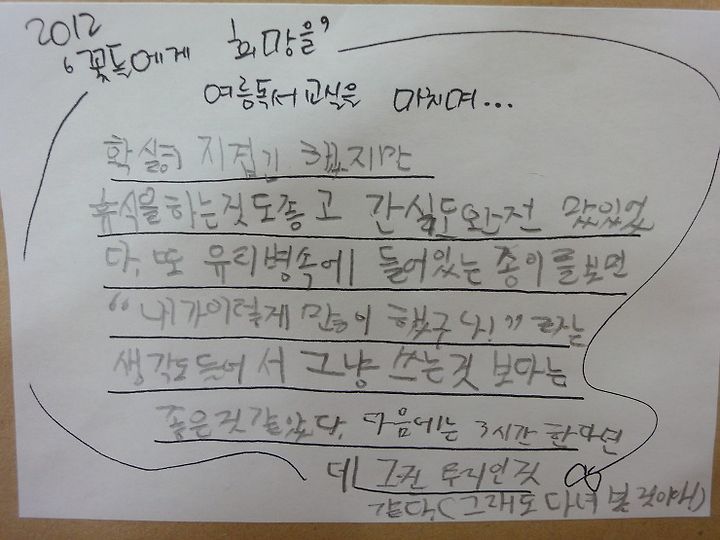 2012
'꽃똑에게 희망을'
여름독서교실을 마치며...
확실히 지겹긴 했지만
휴식을하는것도좋고 간식도완전 맜있었
다. 또 유리병속에 들어있는 종이를보면
“내가이렇게 많이 했구나!” 라는
생각도들어서 그냥 쓰는것 보다는
좋은것같았다. 다음에는 3시간 한다면
데 그건 무리인것
같다.(그래도 다녀 볼것이다!)